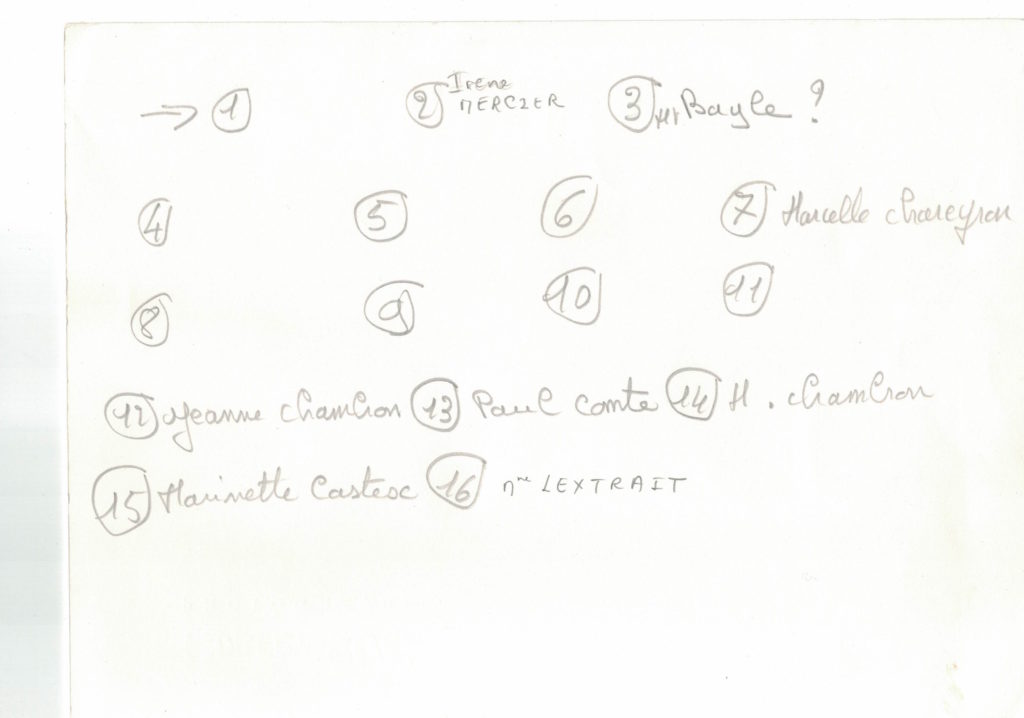 → 1 2 Irène MERCIER 3 Mr Bayle ?
4 5 6 7 Marcelle chareyron
8 9 10 11
12 Jeanne chambon 13 Paul comte 14 M. chambon
15 Marinette Castesc 16 Mme LEXTRAIT